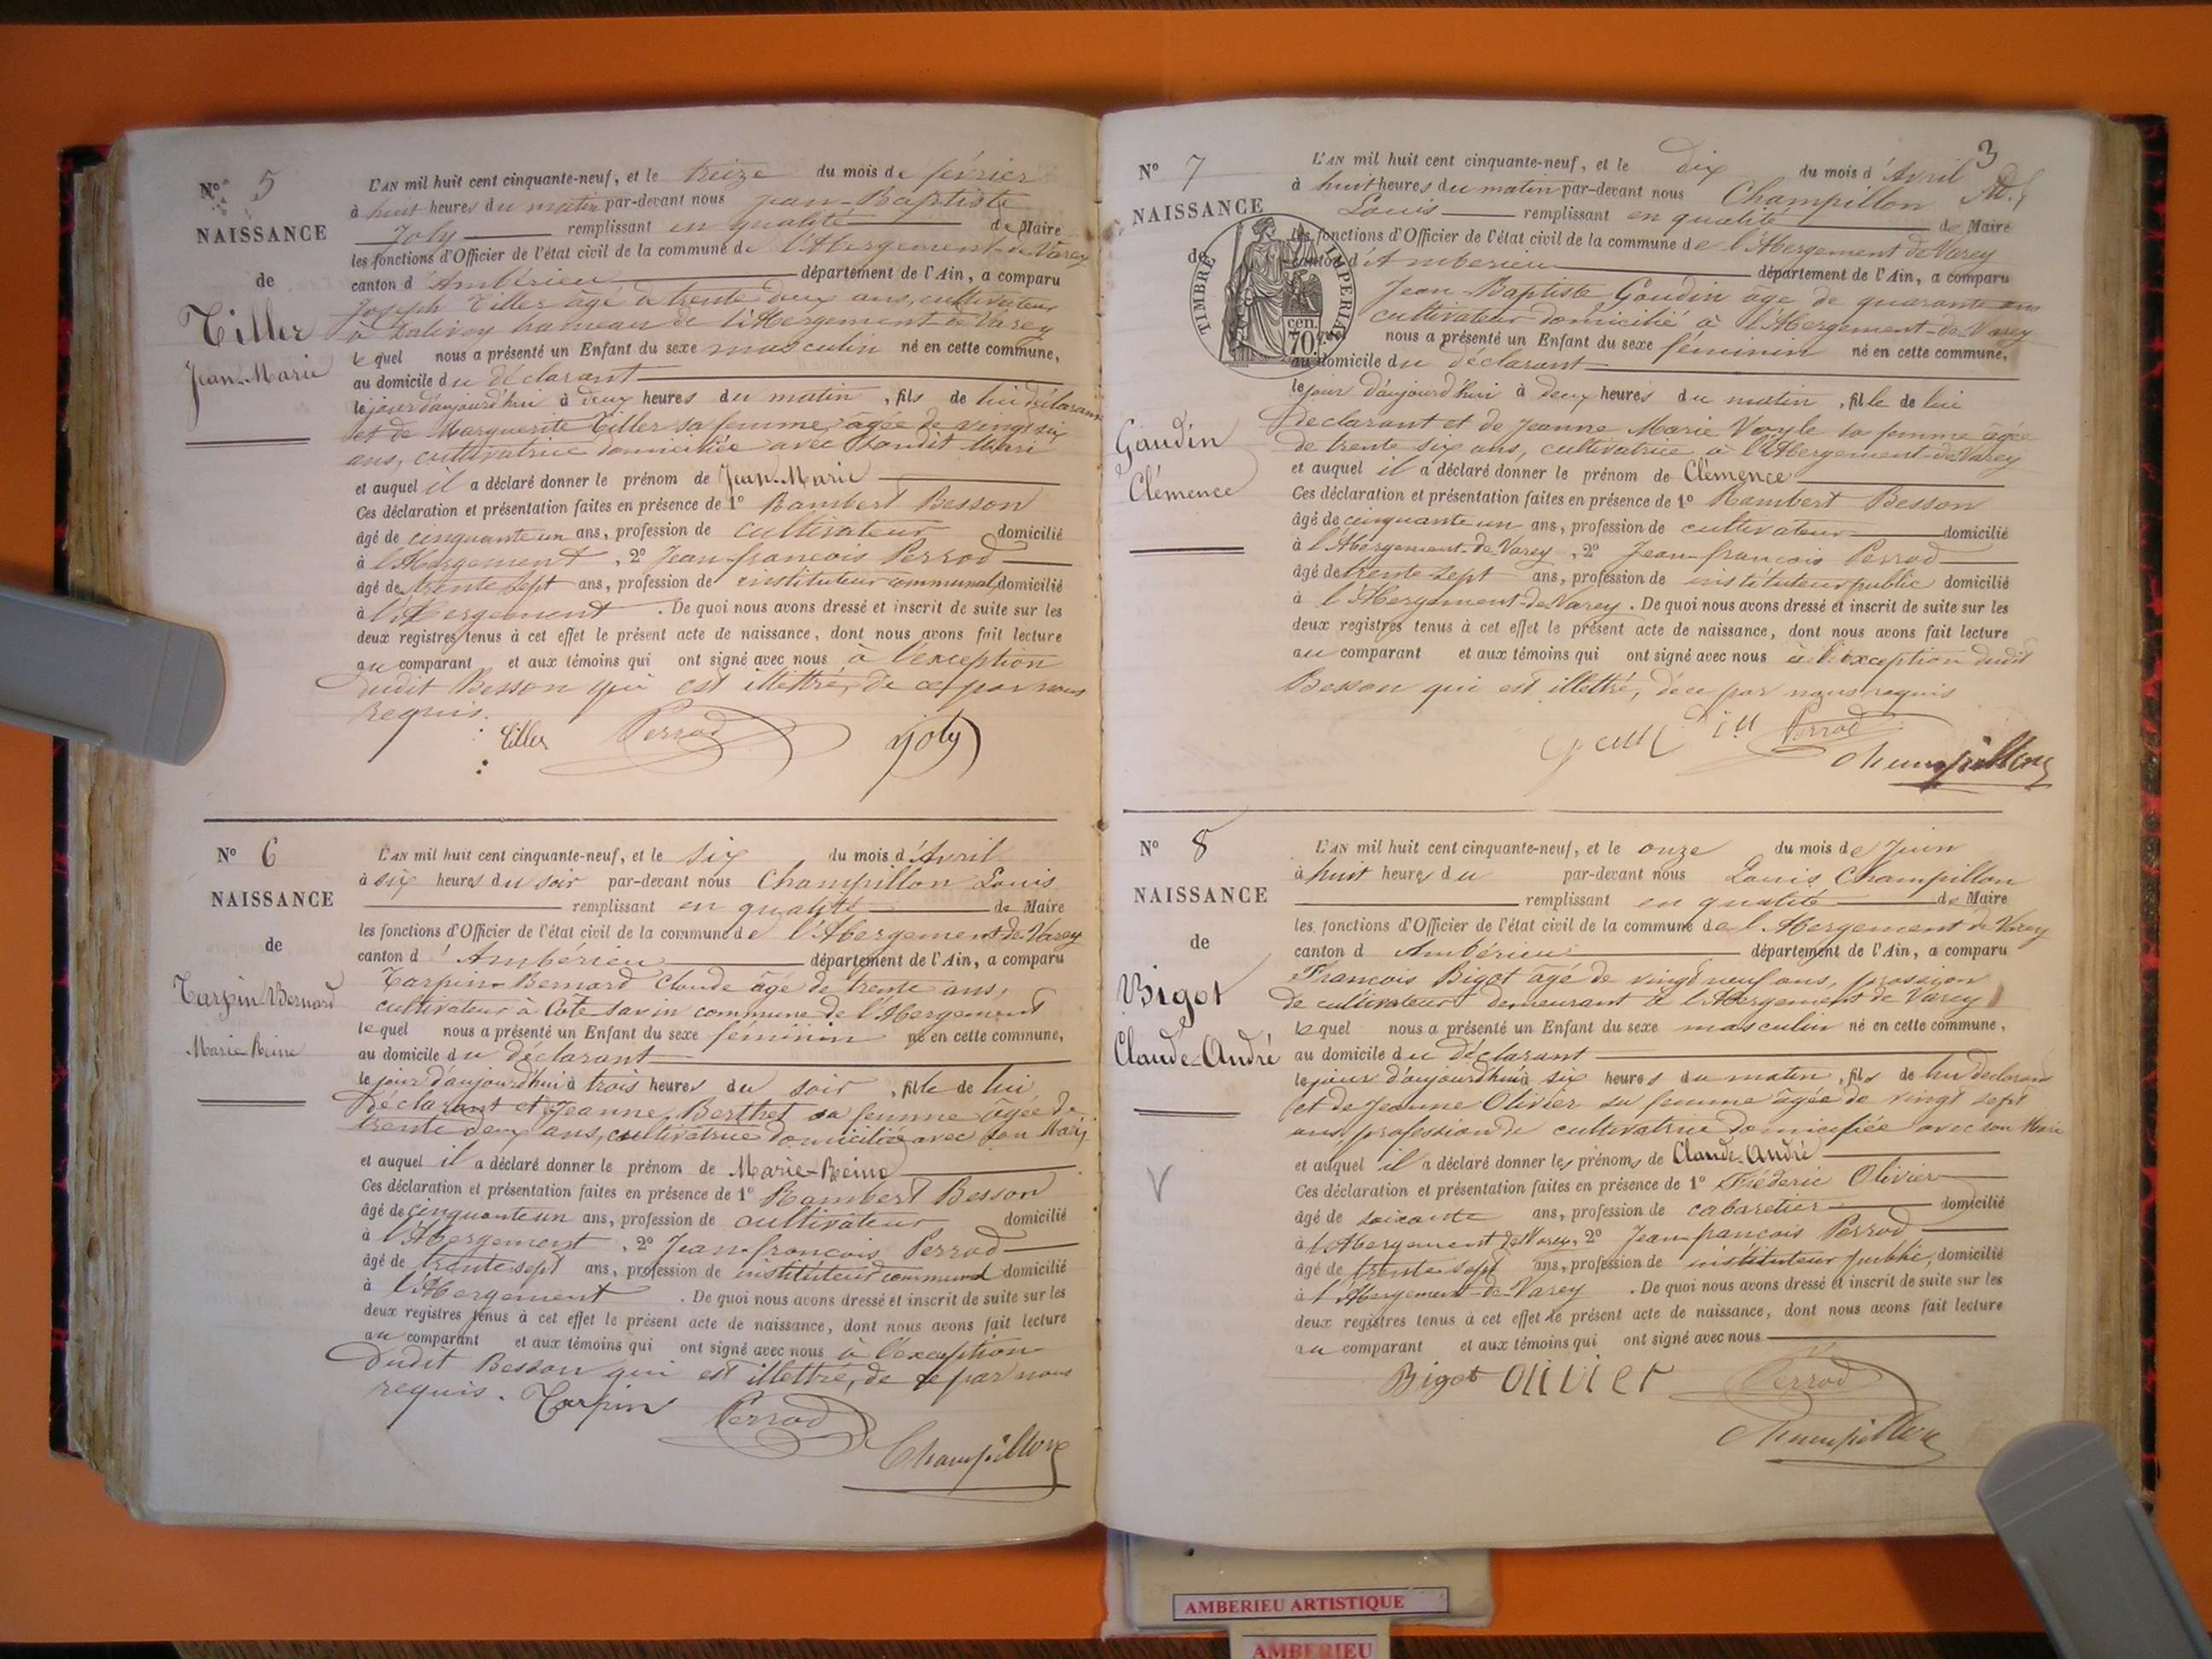 N° 5
NAISSANCE
de
Tiller
Jean-Marie
L'AN mil huit cent cinquante-neuf, et le treize du mois de février
à huit heures du matin par-devant nous Jean-Baptiste
Joly remplissant en qualité de Maire
les fonctions d'Officier de l'état civil de la commune de l'Abergement-de-Varey
canton d'Ambérieu département de l'Ain, a comparu
Joseph Tiller âgé de trente deux ans, cultivateur
à hameau de l'Abergement-de-Varey
lequel nous a présenté un Enfant du sexe masculin né en cette commune,
au domicile du déclarant
le jour d'aujourd'hui à deux heures du matin, fils de lui déclarant
et de Marguerite Tiller sa femme, âgée de vingt six
ans, cultivatrice domiciliée avec sondit Mari
et auquel il a déclaré donner le prénom de Jean-Marie
Ces déclaration et présentation faites en présence de 1° Rambert Besson
âgé de cinquante un ans, profession de cultivateur domicilié
à l'Abergement, 2° Jean-françois Perrod
âgé de trente sept ans, profession de instituteur communal, domicilié
à l'Abergement. De quoi nous avons dressé et inscrit de suite sur les
deux registres tenus à cet effet le présent acte de naissance, dont nous avons fait lecture
au comparant et aux témoins qui ont signé avec nous à l'exception
dudit Besson qui est illettré, de ce par nous
requis.
Tiller Perrod Joly
N° 6
NAISSANCE
de
Tarpin-Bernard
Marie-Reine
L'AN mil huit cent cinquante-neuf, et le six du mois d'Avril
à six heures du soir par-devant nous Champillon Louis
remplissant en qualité de Maire
les fonctions d'Officier de l'état civil de la commune de l'Abergement de Varey
canton d'Ambérieu département de l'Ain, a comparu
Tarpin-Bernard Claude âgé de trente ans,
cultivateur à Côte-savin commune de l'Abergement
lequel nous a présenté un Enfant du sexe féminin né en cette commune,
au domicile du déclarant
le jour d'aujourd'hui à trois heures du soir, fille de lui
déclarant et Jeanne Berthet sa femme âgée de
trente deux ans, cultivatrice domiciliée avec son Mari
et auquel il a déclaré donner le prénom de Marie-Reine
Ces déclaration et présentation faites en présence de 1° Rambert Besson
âgé de cinquante un ans, profession de cultivateur domicilié
à l'Abergement, 2° Jean-françois Perrod
âgé de trente sept ans, profession de instituteur communal domicilié
à l'Abergement. De quoi nous avons dressé et inscrit de suite sur les
deux registres tenus à cet effet le présent acte de naissance, dont nous avons fait lecture
au comparant et aux témoins qui ont signé avec nous à l'exception
dudit Besson qui est illettré, de ce par nous
requis. Tarpin Perrod
Champillon
3
N° 7
NAISSANCE
de
Gaudin
Clémence
TIMBRE IMPERIAL
70 cen.
L'AN mil huit cent cinquante-neuf, et le dix du mois d'Avril
à huit heures du matin par-devant nous Champillon
Louis remplissant en qualité de Maire
les fonctions d'Officier de l'état civil de la commune de l'Abergement de Varey
canton d'Ambérieu département de l'Ain, a comparu
Jean-Baptiste Gaudin âgé de quarante ans
cultivateur domicilié à l'Abergement-de-Varey
nous a présenté un Enfant du sexe féminin né en cette commune,
au domicile du déclarant
le jour d'aujourd'hui à deux heures du matin, fille de lui
Déclarant et de Jeanne Marie sa femme âgée
de trente six ans, cultivatrice à l'Abergement-de-Varey
et auquel il a déclaré donner le prénom de Clémence
Ces déclaration et présentation faites en présence de 1° Rambert Besson
âgé de cinquante un ans, profession de cultivateur domicilié
à l'Abergement-de-Varey, 2° Jean-françois Perrod
âgé de trente-sept ans, profession de instituteur public domicilié
à l'Abergement-de-Varey. De quoi nous avons dressé et inscrit de suite sur les
deux registres tenus à cet effet le présent acte de naissance, dont nous avons fait lecture
au comparant et aux témoins qui ont signé avec nous à l'exception dudit
Besson qui est illettré, de ce par nous requis
Gaudin Perrod
Champillon
N° 8
NAISSANCE
de
Bigot
Claude-André
L'AN mil huit cent cinquante-neuf, et le onze du mois de Juin
à huit heures du par-devant nous Louis Champillon
remplissant en qualité de Maire
les fonctions d'Officier de l'état civil de la commune de l'Abergement de Varey
canton d'Ambérieu département de l'Ain, a comparu
François Bigot âgé de vingt neuf ans,
de cultivateur demeurant à l'Abergement de Varey
lequel nous a présenté un Enfant du sexe masculin né en cette commune,
au domicile du déclarant
le jour d'aujourd'hui à six heures du matin, fils de lui déclarant
et de Jeanne Olivier sa femme âgée de vingt sept
ans, profession de cultivatrice domiciliée avec son Mari
et auquel il a déclaré donner les prénoms de Claude-André
Ces déclaration et présentation faites en présence de 1° Frédéric Olivier
âgé de soixante ans, profession de cabaretier domicilié
à l'Abergement de Varey, 2° Jean-françois Perrod
âgé de trente sept ans, profession de instituteur public, domicilié
à l'Abergement-de-Varey. De quoi nous avons dressé et inscrit de suite sur les
deux registres tenus à cet effet le présent acte de naissance, dont nous avons fait lecture
au comparant et aux témoins qui ont signé avec nous
Bigot Olivier Perrod
Champillon
AMBERIEU ARTISTIQUE
AMBERIEU